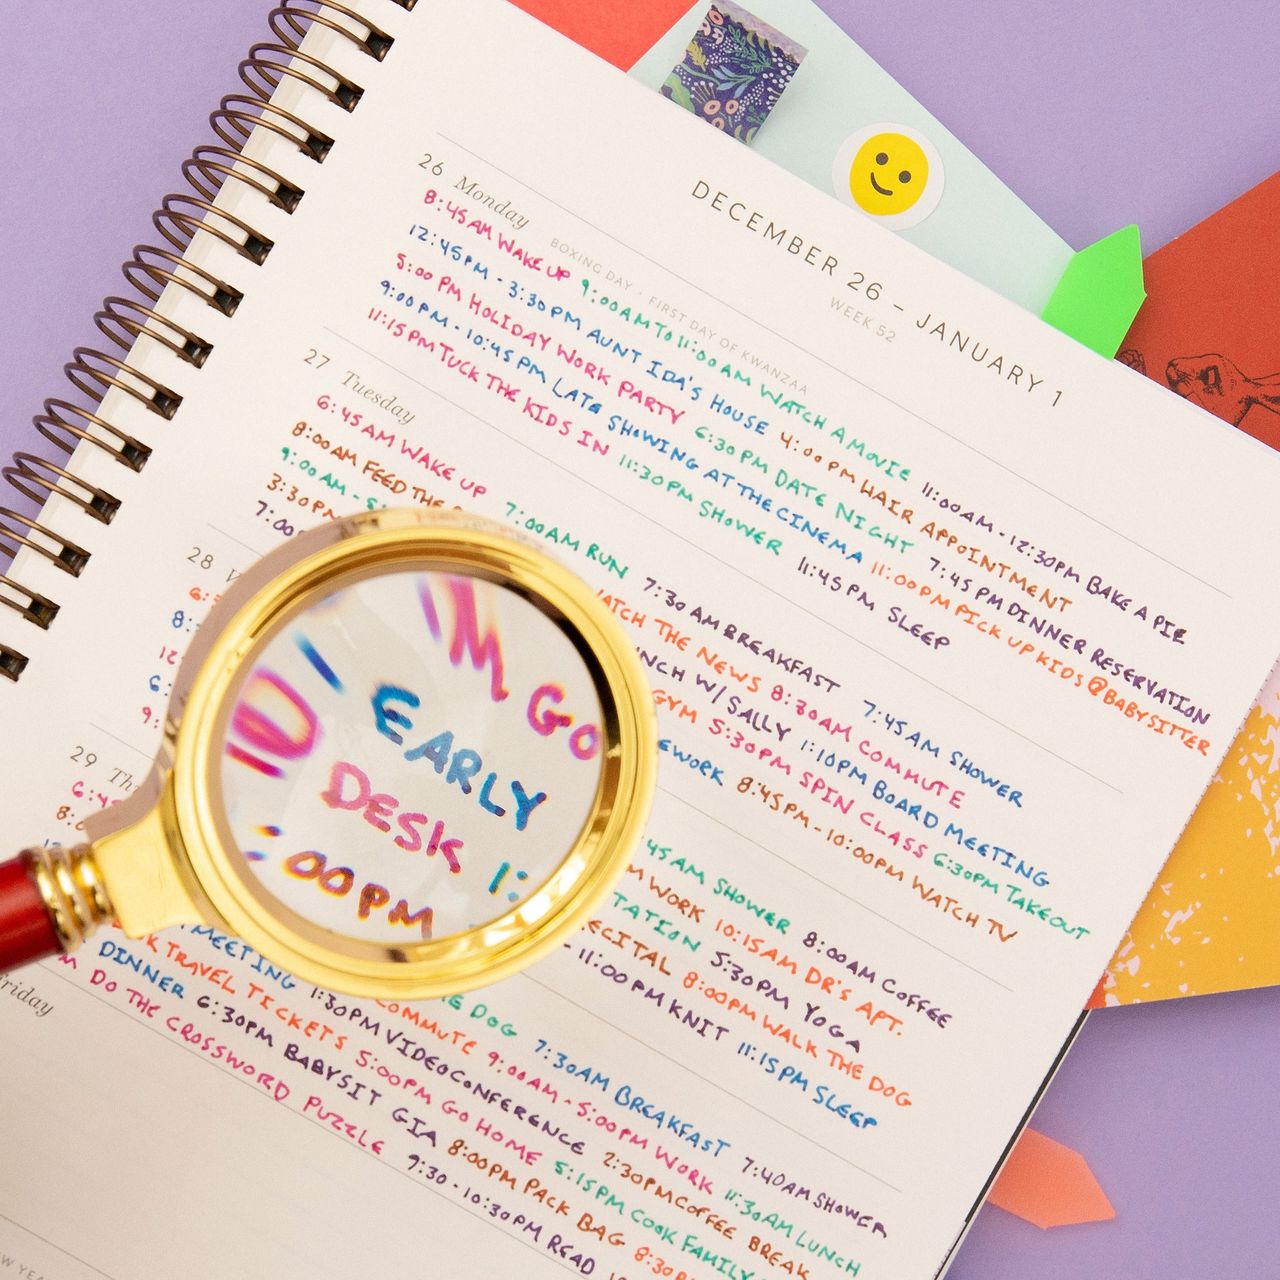 DECEMBER 26 – JANUARY 1
WEEK 52
26 Monday
BOXING DAY · FIRST DAY OF KWANZAA
8:45AM WAKE UP 9:00AM TO 11:00AM WATCH A MOVIE 11:00AM - 12:30PM BAKE A PIE
12:45PM - 3:30PM AUNT IDA'S HOUSE 4:00PM HAIR APPOINTMENT
5:00 PM HOLIDAY WORK PARTY 6:30PM DATE NIGHT 7:45 PM DINNER RESERVATION
9:00PM - 10:45PM LATE SHOWING AT THE CINEMA 11:00PM PICK UP KIDS @ BABYSITTER
11:15PM TUCK THE KIDS IN 11:30PM SHOWER 11:45PM SLEEP
27 Tuesday
6:45AM WAKE UP 7:00AM RUN 7:30AM BREAKFAST 7:45AM SHOWER
8:00AM FEED THE WATCH THE NEWS 8:30AM COMMUTE
9:00AM - 5: LUNCH W/ SALLY 1:10PM BOARD MEETING
3:30PM GYM 5:30PM SPIN CLASS 6:30PM TAKEOUT
7:00 8:45PM - 10:00PM WATCH TV
28
6: M GO
8: EARLY
12 DESK 1:
6: :00PM
9:
:45AM SHOWER 8:00AM COFFEE
WORK 10:15AM DR'S APT.
5:30PM YOGA
RECITAL 8:00PM WALK THE DOG
11:00PM KNIT 11:15PM SLEEP
29
6:45 THE DOG 7:30AM BREAKFAST 7:40AM SHOWER
8:0 COMMUTE 9:00AM - 5:00PM WORK 11:30AM LUNCH
12 MEETING 1:30PM VIDEOCONFERENCE 2:30PM COFFEE BREAK
TRAVEL TICKETS 5:00PM GO HOME 5:15PM COOK FAMILY
DINNER 6:30PM BABYSIT GIA 8:00PM PACK BAG 8:30
DO THE CROSSWORD PUZZLE 9:30 - 10:30PM READ